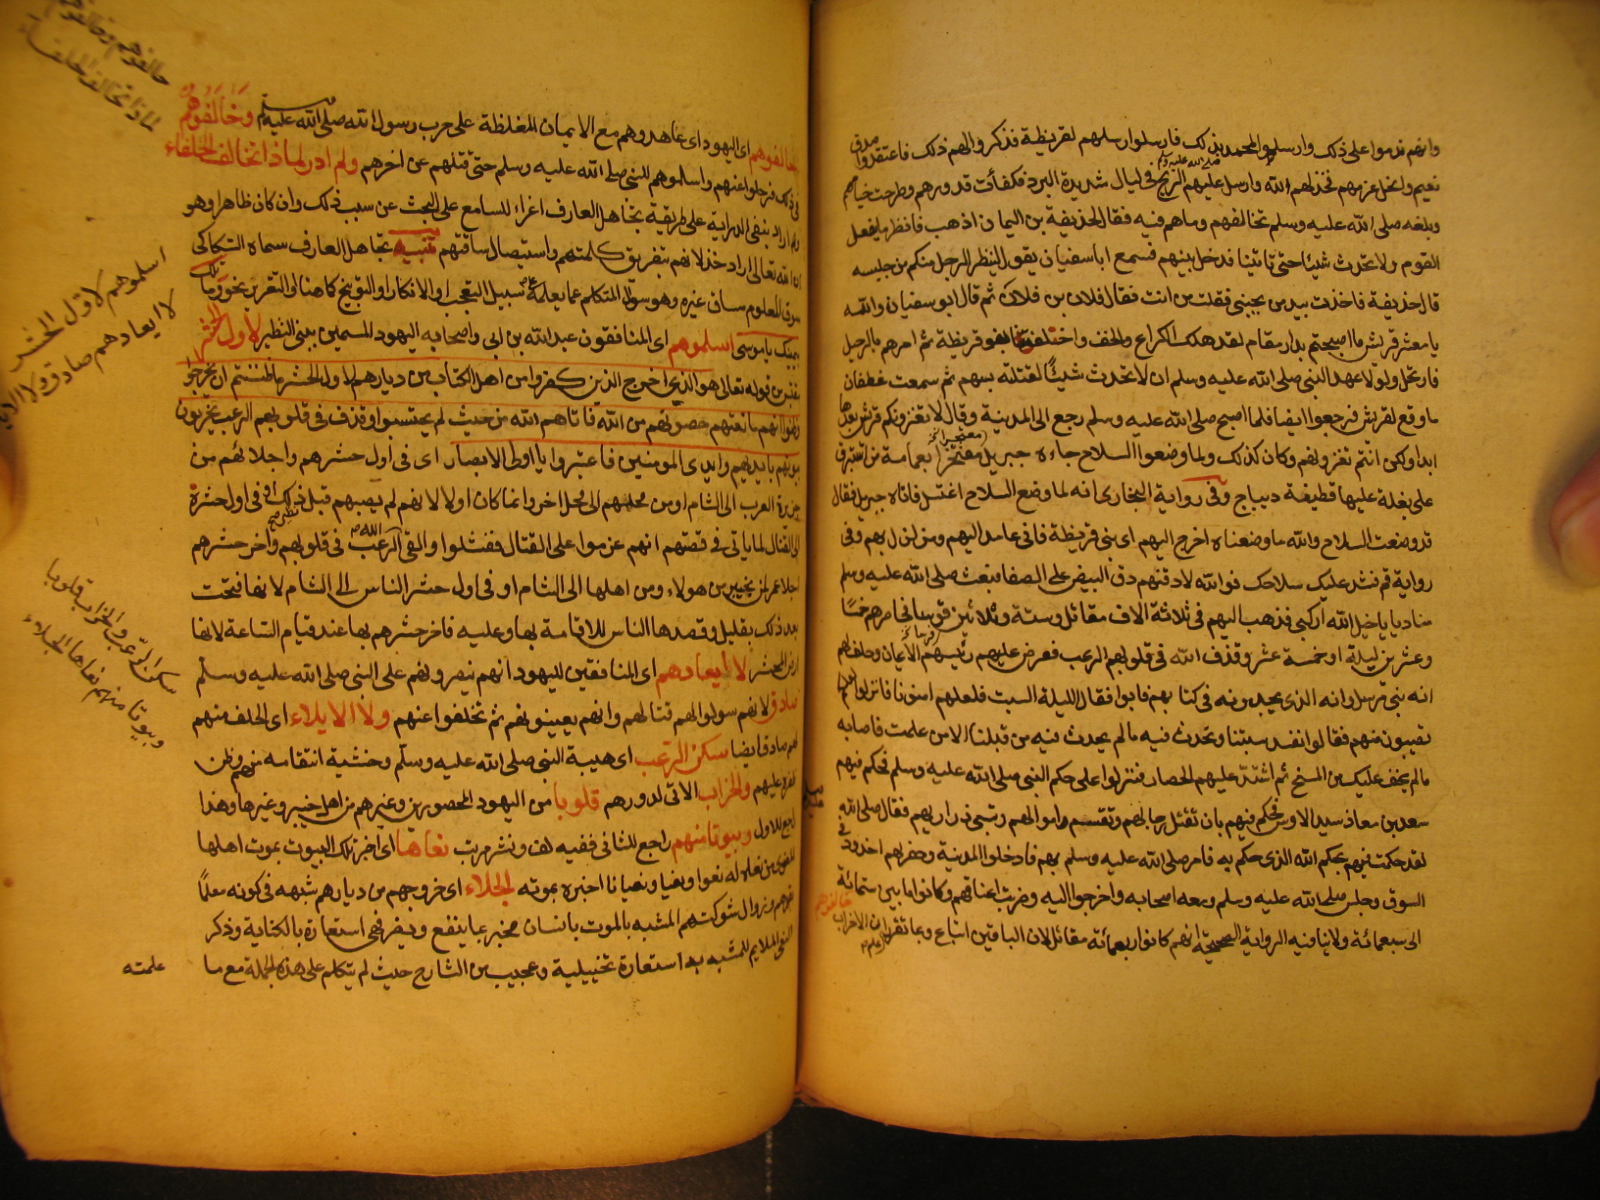 وانهم قدموا على ذلك وارسلوا لمحمد بذلك فارسلوا رسلهم لقريظة فذكروا لهم ذلك فاعتقدوا صدق
نعيم وانحل عزمهم فخذلهم الله وارسل عليهم الريح في ليال شديدة البرد فكفأت قدورهم وطرحت خيامهم
وبلغه صلى الله عليه وسلم تخالفهم وما هم فيه فقال لحذيفة بن اليمان اذهب فانظر ما يفعل
القوم ولا تحدث شيئا حتى تاتينا فدخل بينهم فسمع ابا سفيان يقول لينظر الرجل منكم من جليسه
قال حذيفة فاخذت بيد من بجنبي فقلت من انت فقال فلان بن فلان ثم قال ابو سفيان والله
يا معشر قريش ما اصبحتم بدار مقام لقد هلك الكراع والخف واختلفنا بنو قريظة ثم امرهم بالرحيل
فارتحل ولولا عهد النبي صلى الله عليه وسلم ان لا تحدث شيئا لقتلته بسهم ثم سمعت غطفان
ما وقع لقريش فرجعوا ايضا فلما اصبح صلى الله عليه وسلم رجع الى المدينة وقال لا يغزونكم قريش بعدها
ابدا ولكن انتم تغزونهم وكان كذلك ولما وضعوا السلاح جاءه جبريل معتجرا بعمامة من استبرق
على بغلة عليها قطيفة ديباج وفي رواية البخاري انه لما وضع السلاح اغتسل فاتاه جبريل فقال
قد وضعت السلاح والله ما وضعناه اخرج اليهم اى بنى قريظة فاني عامد اليهم ومزلزل بهم وفي
رواية قم فشد عليك سلاحك فوالله لادقنهم دق البيض على الصفا فبعث صلى الله عليه وسلم
مناديا يا خيل الله اركبى فذهب اليهم في ثلاثة الاف مقاتل وستة وثلاثين فرسا فحاصرهم خمسا
وعشرين ليلة او خمسة عشر وقذف الله في قلوبهم الرعب فعرض عليهم رئيسهم الايمان وحلف لهم
انه نبي مرسل وانه الذى يجدونه في كتابهم فابوا فقال الليلة السبت فلعلهم امنونا فانزلوا لعلنا
نصيبون منهم فقالوا نفسد سبتنا ونحدث فيه ما لم يحدث فيه من قبلنا الا من علمت فاصابه
ما لم يخف عليك من المسخ ثم اشتد عليهم الحصار فنزلوا على حكم النبي صلى الله عليه وسلم فحكم فيهم
سعد بن معاذ سيد الاوس فحكم فيهم بان تقتل رجالهم وتقسم اموالهم وتسبى ذراريهم فقال صلى الله عليه وسلم
لقد حكمت فيهم بحكم الله الذى حكم به فامر صلى الله عليه وسلم بهم فادخلوا المدينة وحفر لهم اخدود في
السوق وجلس صلى الله عليه وسلم ومعه اصحابه واخرجوا اليه وضربت اعناقهم وكانوا ما بين ستمائة
الى سبعمائة ولا ينافيه الرواية الصحيحة انهم كانوا اربعمائة مقاتل لان الباقين اتباع وبما تقرر
حالفوهم اى اليهود اى عاهدوهم مع الايمان المغلظة على حرب رسول الله صلى الله عليه وسلم وخالفوهم
في ذلك فرحلوا عنهم واسلموهم للنبى صلى الله عليه وسلم حتى قتلهم عن اخرهم ولم ادر لماذا تخالف الحلفاء
ولم اراد بنفى الدراية على طريقة تجاهل العارف اغراء للسامع على البحث عن سبب ذلك وان كان ظاهرا وهو
ان الله تعالى اراد خذلانهم بتفريق كلمتهم واستيصال ساقتهم تنبيه تجاهل العارف سماه السكاكى
سوق المعلوم مساق غيره وهو سؤال المتكلم عما يعلمه سبيل التعجب او الانكار او التوبيخ كما هنا او التقرير نحو وما تلك
بيمينك يا موسى اسلموهم اى المنافقون عبد الله بن ابى واصحابه اليهود المسمين ببنى النظير لاول الحشر
مقتبس من قوله تعالى هو الذى اخرج الذين كفروا من اهل الكتاب من ديارهم لاول الحشر ما ظننتم ان يخرجوا
وظنوا انهم مانعتهم حصونهم من الله فاتاهم الله من حيث لم يحتسبوا وقذف في قلوبهم الرعب يخربون
بيوتهم بايديهم وايدى المومنين فاعتبروا يا اولى الابصار اى في اول حشرهم واجلائهم من
جزيرة العرب الى الشام او من محلهم الى محل اخر وانما كان اولا لانهم لم يصبهم قبل ذلك او في اول حشره
الى القتال لما ياتى في قصتهم انهم عزموا على القتال ففشلوا والقى الله الرعب في قلوبهم واخر حشرهم
اجلا عمر لمن بخيبر من هولاء ومن اهلها الى الشام او في اول حشر الناس الى الشام لانها فتحت
بعد ذلك بقليل وقصدها الناس للاقامة بها وعليه فاخر حشرهم بها عند قيام الساعة لانها
ارض المحشر لا ايعادهم اى المنافقين لليهود انهم ينصرونهم على النبى صلى الله عليه وسلم
صادق لانهم سولوا لهم قتالهم وانهم يعينونهم ثم تخلفوا عنهم ولا الايلاء اى الحلف منهم
لهم صادق ايضا سكن الرعب اى هيبة النبى صلى الله عليه وسلم وخشية انتقامه منهم وظن
عليهم والخراب الاتى لدورهم قلوبا من اليهود المحصورين وغيرهم من اهل خيبر وغيرها وهذا
راجع للاول وبيوتا منهم راجع للثانى ففيه لف ونشر مرتب نعاها اى اخبر تلك البيوت بموت اهلها
نعوا ونعيا ونعيانا اخبره بموته الجلاء اى خروجهم من ديارهم شبهه في كونه معلما
وزوال شوكتهم المشبه بالموت بانسان مخبر بما ينفع ويضر ففى استعارة بالكناية وذكر
النعى الملايم للمشبه به استعارة تخييلية وعجيب من الشارح حيث لم يتكلم على هذه الجملة مع ما
علمته
حالفوهم وخالفوهم
لماذا تخالف الحلفاء
اسلموهم لاول الحشر
لا ايعادهم صادق ولا الايلاء
سكن الرعب والخراب قلوبا
وبيوتا منهم نعاها الجلاء